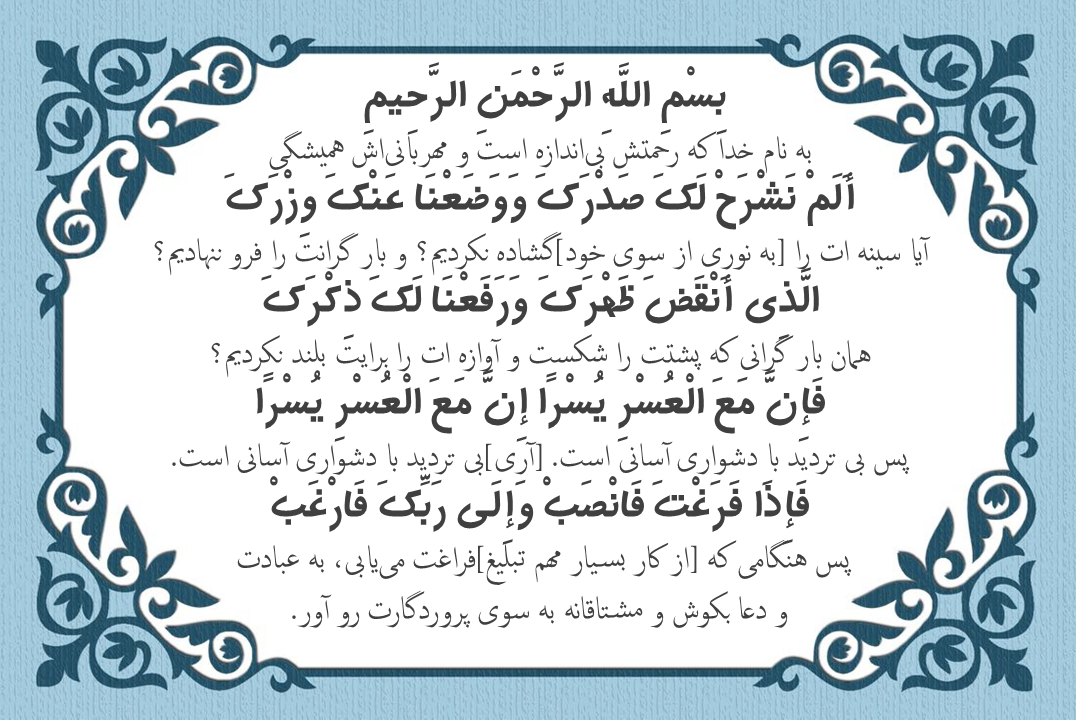 بسْم اللَّه الرَّحْمَن الرَّحیم
به نام خدا که رحمتش بی‌اندازه است و مهربانی‌اش همیشگی
أَلَمْ نَشْرَحْ لَکَ صَدْرَکَ وَوَضَعْنَا عَنْکَ وزْرَکَ
آیا سینه ات را [به نوری از سوی خود]گشاده نکردیم؟ و بار گرانت را فرو ننهادیم؟
الَّذی أَنْقَضَ ظَهْرَکَ وَرَفَعْنَا لَکَ ذکْرَکَ
همان بار گرانی که پشتت را شکست و آوازه ات را برایت بلند نکردیم؟
فَإنَّ مَعَ الْعُسْر یُسْرًا إنَّ مَعَ الْعُسْر یُسْرًا
پس بی تردید با دشواری آسانی است. [آری]بی تردید با دشواری آسانی است.
فَإذَا فَرَغْتَ فَانْصَبْ وَإلَی رَبِّکَ فَارْغَبْ
پس هنگامی که [از کار بسیار مهم تبلیغ]فراغت می‌یابی، به عبادت
و دعا بکوش و مشتاقانه به سوی پروردگارت رو آور.